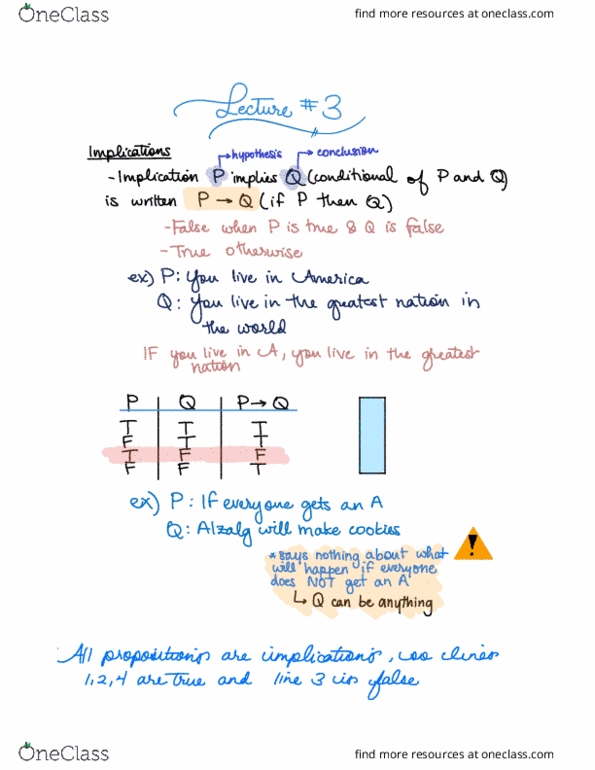 OneClass
find more resources at oneclass.com
Lecture #3
Implications
hypothesis conclusion
-Implication P implies Q (conditional of P and Q)
is written P → Q (if P then Q)
-False when P is true & Q is false
-True otherwise
ex) P: You live in America
Q: You live in the greatest nation in
the world
IF you live in A, you live in the greatest
nation
P Q P→Q
T T T
F T T
T F F
F F T
ex) P: If everyone gets an A
Q: Alzalg will make cookies
*says nothing about what
will happen if everyone
does NOT get an A
↳ Q can be anything
All propositions are implications, so lines
1,2,4 are true and line 3 is false
OneClass
find more resources at oneclass.com